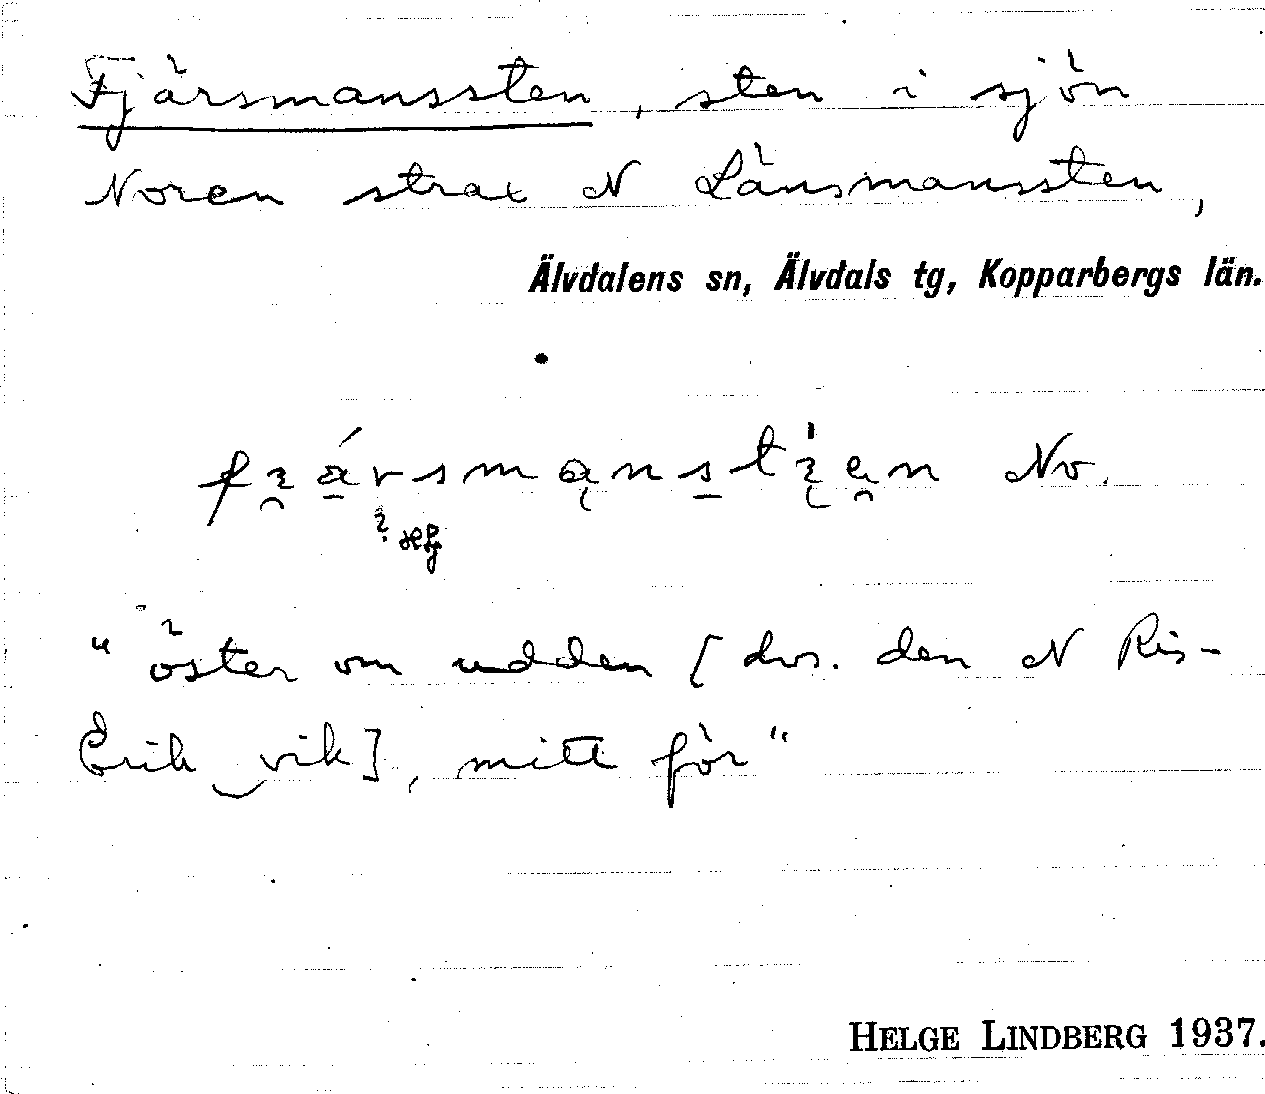 Fjärsmanssten, sten i sjön
Noren strax N Länsmanssten,
Älvdalens sn, Älvdals tg, Kopparbergs län.
No.
"öster om udden [dvs. den N Ris-
Erik vik], mitt för"
HELGE LINDBERG 1937.